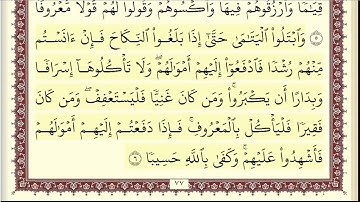 قِيَٰمٗا وَٱرۡزُقُوهُمۡ فِيهَا وَٱكۡسُوهُمۡ وَقُولُواْ لَهُمۡ قَوۡلٗا مَّعۡرُوفٗا
٥ وَٱبۡتَلُواْ ٱلۡيَتَٰمَىٰ حَتَّىٰٓ إِذَا بَلَغُواْ ٱلنِّكَاحَ فَإِنۡ ءَانَسۡتُم
مِّنۡهُمۡ رُشۡدٗا فَٱدۡفَعُوٓاْ إِلَيۡهِمۡ أَمۡوَٰلَهُمۡۖ وَلَا تَأۡكُلُوهَآ إِسۡرَافٗا
وَبِدَارًا أَن يَكۡبَرُواْۚ وَمَن كَانَ غَنِيّٗا فَلۡيَسۡتَعۡفِفۡۖ وَمَن كَانَ
فَقِيرٗا فَلۡيَأۡكُلۡ بِٱلۡمَعۡرُوفِۚ فَإِذَا دَفَعۡتُمۡ إِلَيۡهِمۡ أَمۡوَٰلَهُمۡ
فَأَشۡهِدُواْ عَلَيۡهِمۡۚ وَكَفَىٰ بِٱللَّهِ حَسِيبٗا ٦
٧٧